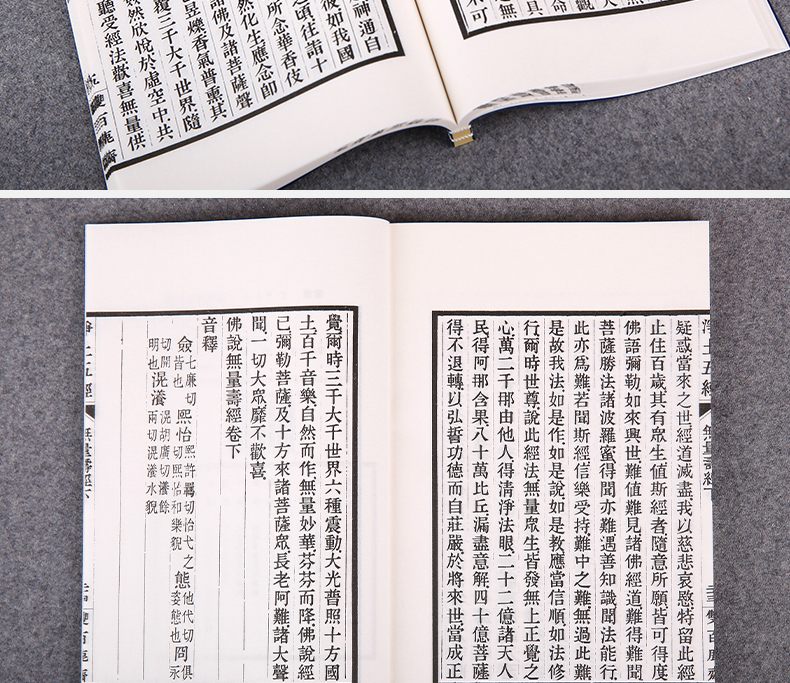 神通自
後如我國
之頃往詣十
所念華香伎
然化生應念即
諸佛及諸菩薩聲
昱爍香氣普熏其
覆三千大千世界隨
然欣悅於虛空中共
聽受經法歡喜無量供
雙百鹿齋
土五經
無量壽經
雙百鹿齋
疑惑當來之世經道滅盡我以慈悲哀愍特留此經
止住百歲其有眾生值斯經者隨意所願皆可得度
佛語彌勒如來興世難值難見諸佛經道難得難聞
菩薩勝法諸波羅蜜得聞亦難遇善知識聞法能行
此亦為難若聞斯經信樂受持難中之難無過此難
是故我法如是作如是說如是教應當信順如法修
行爾時世尊說此經法無量眾生皆發無上正覺之
心萬二千那由他人得清淨法眼二十二億諸天人
民得阿那含果八十萬比丘漏盡意解四十億菩薩
得不退轉以弘誓功德而自莊嚴於將來世當成正
覺爾時三千大千世界六種震動大光普照十方國
土百千音樂自然而作無量妙華芬芬而降佛說經
已彌勒菩薩及十方來諸菩薩眾長老阿難諸大聲
聞一切大眾靡不歡喜
佛說無量壽經卷下
音釋
僉 七廉切皆也 熙怡 熙許羈切怡弋之切熙怡和樂貌 態 他代切姿態也 冏 俱永
切開明也 滉瀁 滉胡廣切瀁餘兩切滉瀁水貌
土五經
無量壽經下
雙百鹿齋